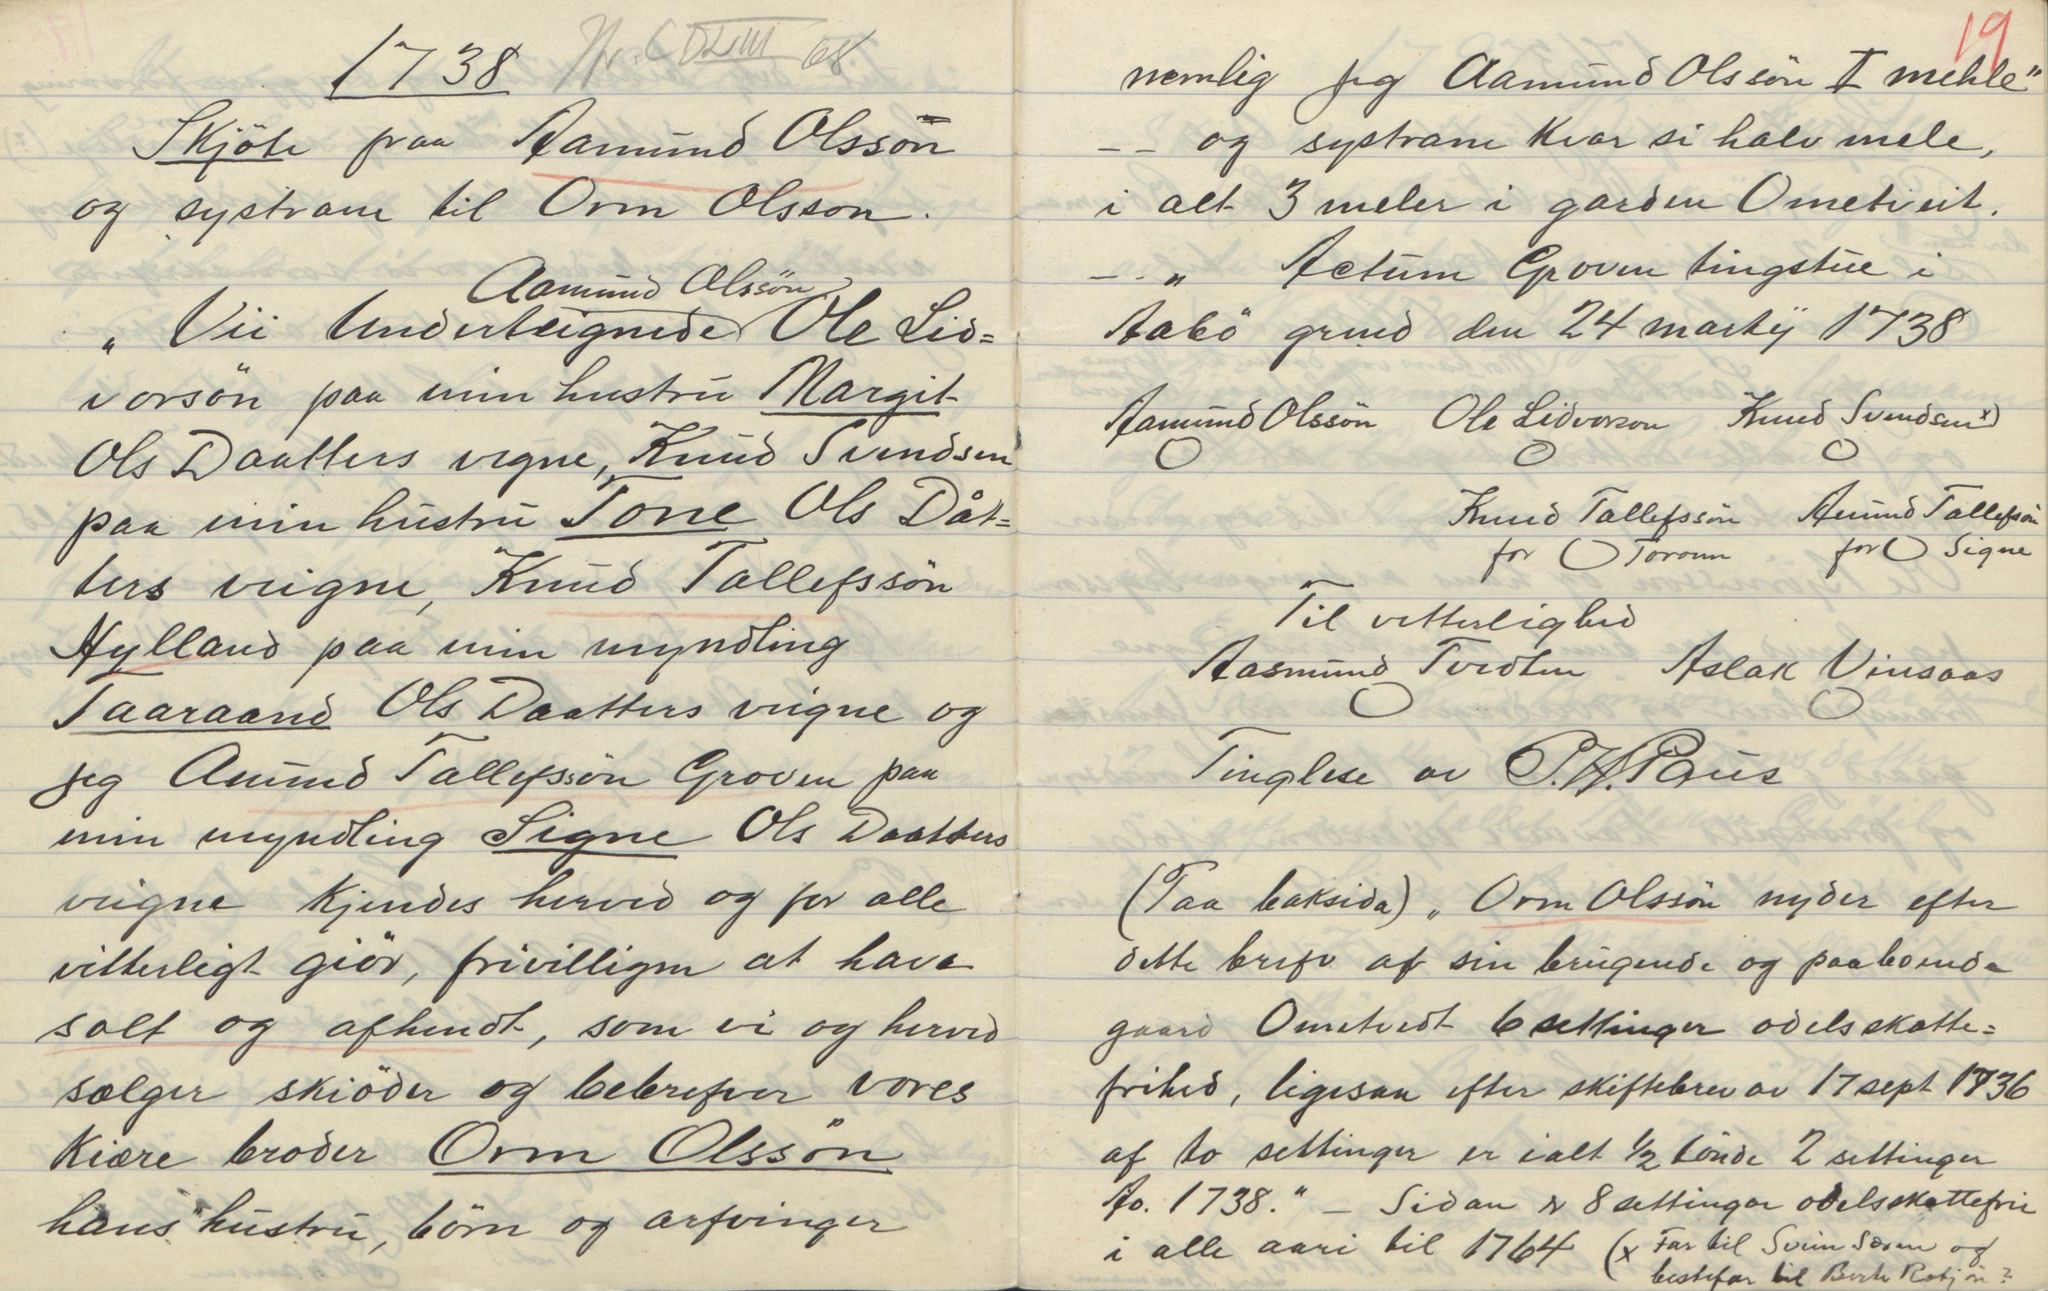 1738
Skjöte fraa Aamund Olssön
og systrane til Orm Olsson.
Aamund Olssön
„ Vii Underteignede Ole Lid=
vorsön paa min hustru Margit
Ols Daatters vegne, Knud Svendsen
paa min hustru Tone Ols Dåt=
ters veigne, Knud Tallefssön
Hylland paa min myndling
Taaraand Ols Daatters veigne og
jeg Amund Tallefssön Groven paa
min myndling Signe Ols Daatters
veigne kjendes herved og for alle
vitterligt giör, frivilligen at have
solt og afhendt, som vi og herved
sælger skiöder og bebrefver vores
kiære broder Orm Olssön
hans hustru, börn og arfvinger
19
nemlig jeg Aamund Olssön I mehle"
-- og systrane kvar si halv mele,
i alt 3 meler i garden Ometveit.
-- „ Actum Groven tingstue i
Aabö grend den 24 martij 1738
Aamund Olssön Ole Lidvorson Knud Svendsen x)
Knud Tallefssön Amund Tallefsön
for Toroun for Signe
Til vitterlighed
Aasmund Tvedten Aslak Vinsaas
Tinglese av P.H. Paus
(Paa baksida) „ Orm Olssön nyder efter
dette brefv af sin brugende og paaboende
gaard Ometvedt 6 settinger odelsskatte=
frihed, ligesaa efter skiftebrev av 17 sept 1736
af to settinger er ialt ½ tönde 2 settinger
Ao. 1738." — Sidan 8 settingar odelsskattefrie
i alle aari til 1764 (x Far til Svein Særen og
bestefar til